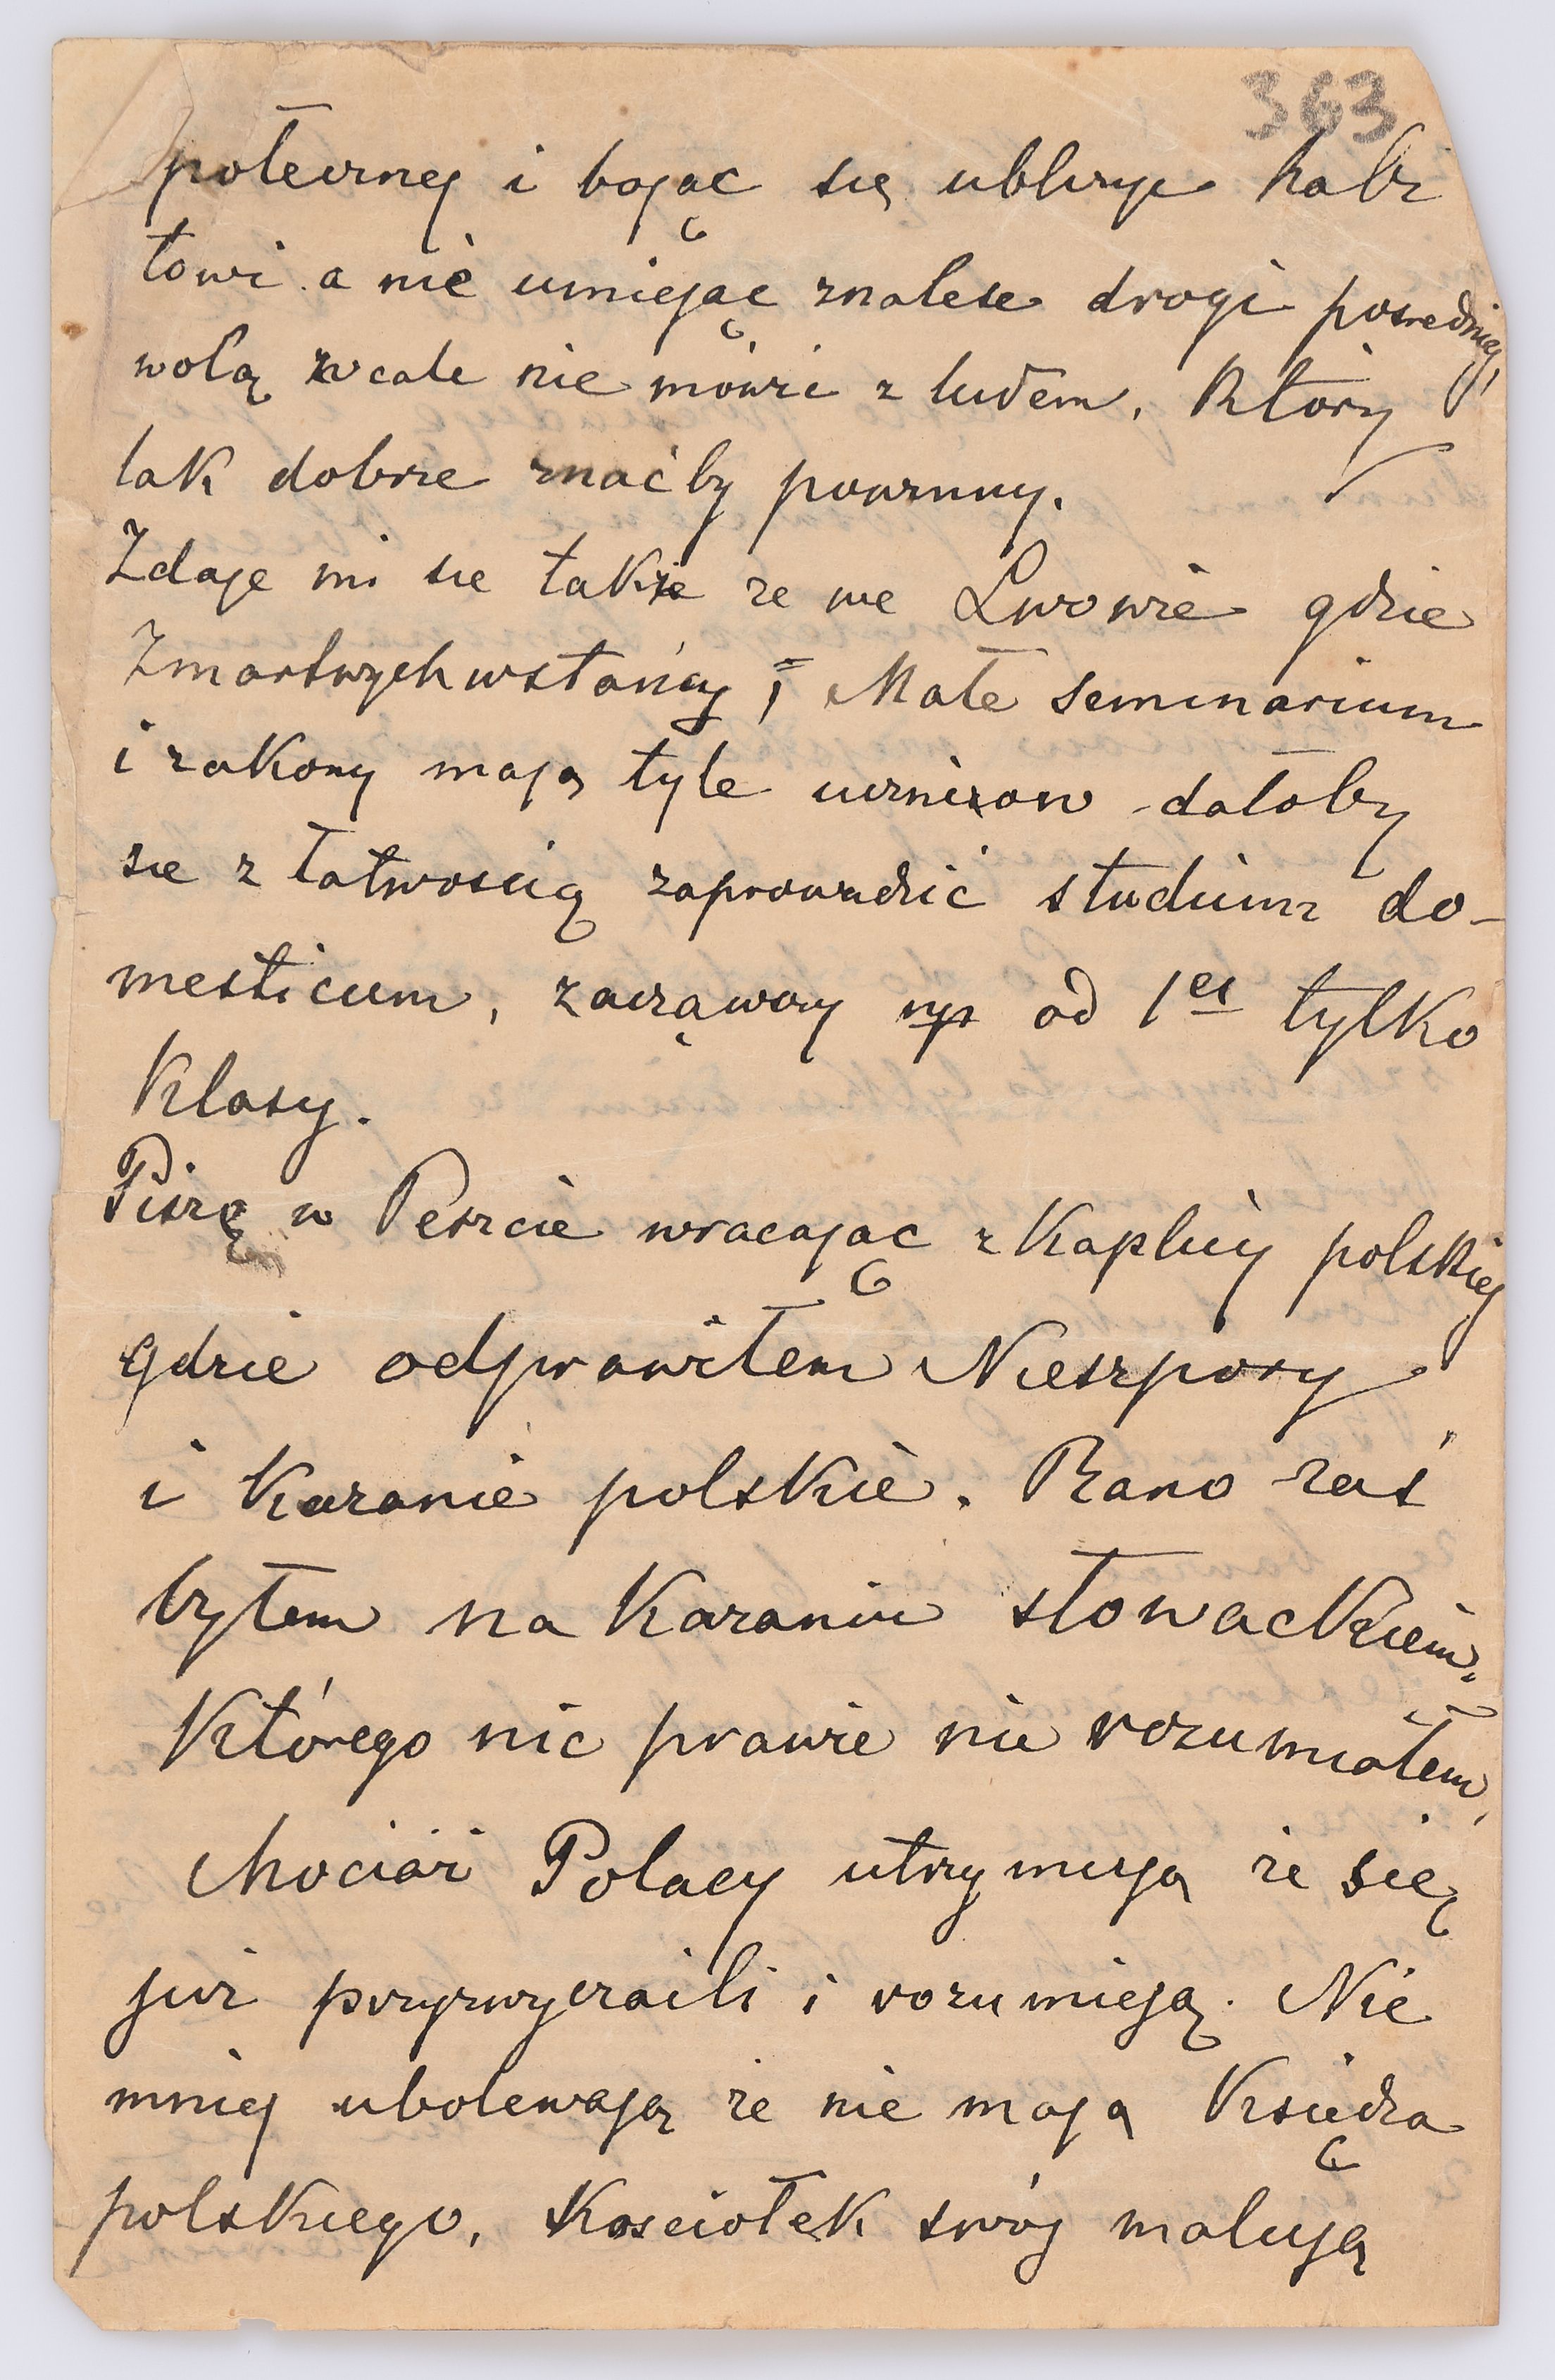 363
potecznej i bojąc się ubliżyc habi
towi a nie umiejąc znalesc drogi posredniej,
wolą wcale nie mówic z ludem, Który
tak dobrze znać by powinny.
Zdaje mi sie także ze we Lwowie gdzie
Zmartwychwstańcy i Małe seminarium
i zakony mają tyle uczniow dałoby
sie z łatwoscią zaprowadzić studium do-
mesticum, zacząwszy np od 1ej tylko
Klasy.
Piszę w Peszcie wracając z Kaplicy polskiej
gdzie odprawiłem Nieszpory
i Kazanie polskie. Rano zaś
byłem na Kazaniu słowackiem,
Którego nic prawie nie rozumiałem,
chociaż Polacy utrzymują że się
już przyzwyczaili i rozumieją. Nie
mniej ubolewają że nie mają Księdza
polskiego, Kosciołek swój malują